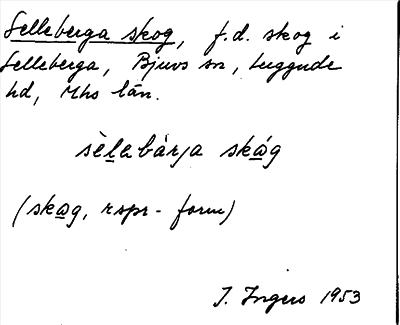 Selleberga skog, f.d. skog i
Selleberga, Bjuvs sn, Luggude
hd, Mhs län.
sèlebàrja skåg
(skag, rspr-form)
I. Ingers 1953